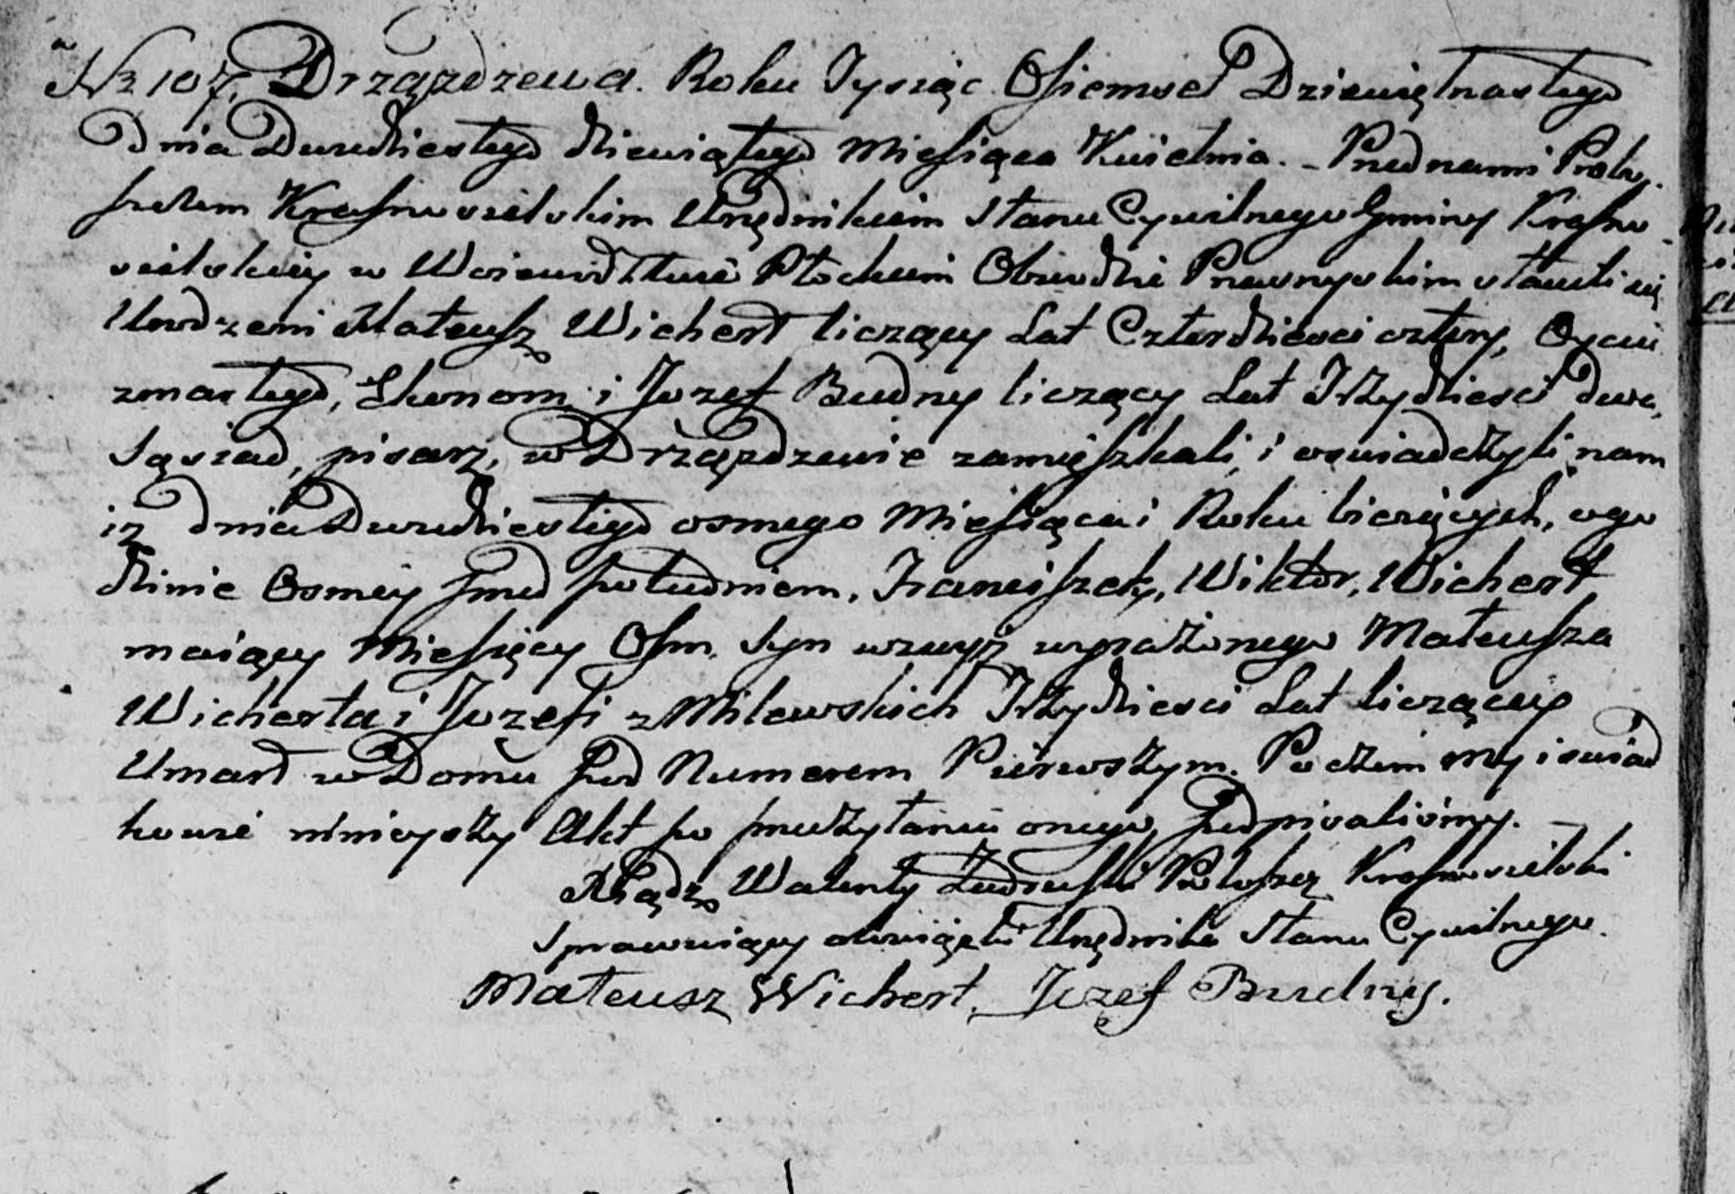 Nr 107. Drzązdzewa. Roku Tysiąc Ośiemset Dziewiętnastego
Dnia Dwudziestego dziewiątego Miesiąca Kwietnia. – Przed nami Probo-
szczem Krasnosielskim Urzędnikiem Stanu Cywilnego Gminy Krasno-
sielskiey w Woiewództwie Płockim Obwodzie Przasnyskim stawili się
Urodzeni Mateusz Wichert liczący Lat Czterdzieści cztery, Oyciec
zmarłego, Ekonom i Jozef Budny liczący Lat Trzydzieści dwa,
sąsiad, pisarz, w Drzązdzewie zamieszkali, i oswiadczyli nam
iz dnia Dwudziestego osmego Miesiąca i Roku bieżących, o go
dzinie Osmey przed południem, Franciszek, Wiktor, Wichert
maiący Miesięcy Ośm, Syn wzwyż wyrażonego Mateusza
Wicherta i Jozefi z Milewskich Trzydzieści Lat liczącey
Umarł w Domu pod Numerem Pierwszym. Poczem my i świad
kowie ninieyszy Akt po przeczytaniu onego podpisaliśmy. –
Xiądz Walenty Proboszcz Krasnosielski
Sprawuiący obowiązki Urzędnika Stanu Cywilnego.
Mateusz Wichert, Jozef Budny.